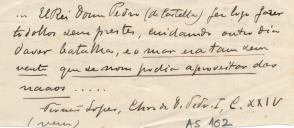 ... El Rei Dom Pedro (de Castella) fez logo fazer
todollos seus prestes, cuidando outro dia
daver batalha, e o mar era tam sem
vento que se nom podia aproveitar das
naaos .....
Fernão Lopes, Chor. D. Pedr. I, C. XXIV
(vem)
AS 102